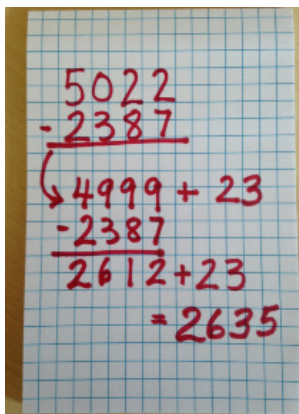 5022
- 2387
4999 + 23
- 2387
2612 + 23
= 2635